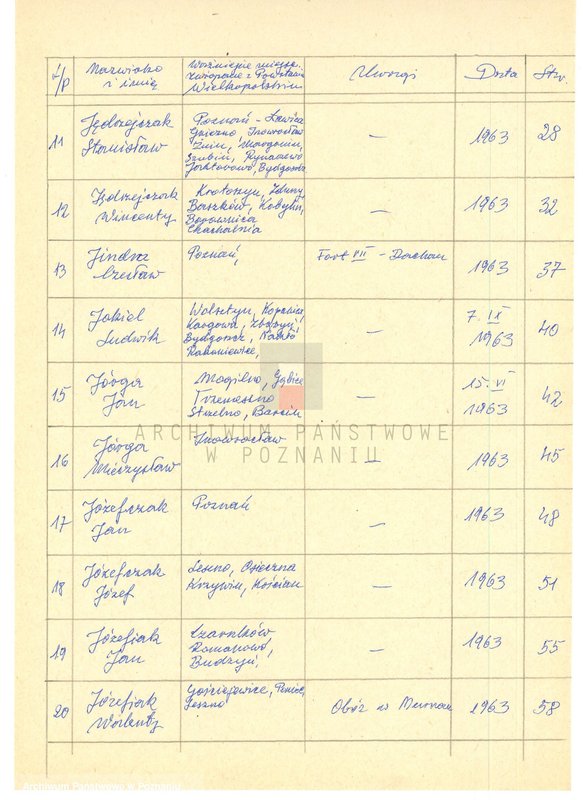 L/p Nazwisko i imię Ważniejsze miejsc. związane z Powstaniem Wielkopolskim Uwagi Data Str.
11 Jędrzejczak Stanisław
Poznań - Ławica
Gniezno, Inowrocław
Żnin,
Szubin, Rynarzewo
Bydgoszcz
— 1963 28
12 Jędrzejczak Wincenty
Krotoszyn, Zduny
Baszków, Kobylin,
Borownica
Chachalnia
— 1963 32
13 Jindra Czesław
Poznań,
Fort VII - Dachau
1963 37
14 Jokiel Ludwik
Wolsztyn, Kopanica
Kargowa, Zbąszyń
Bydgoszcz, Nakło
Rakoniewice,
— 7. IX 1963 40
15 Jórga Jan
Mogilno, Gębice
Trzemeszno
Strzelno, Barcin
— 15. VI 1963 42
ARCHIWUM PAŃSTWOWE
W POZNANIU
16 Jórga Mieczysław
Inowrocław
— 1963 45
17 Józefczak Jan
Poznań
— 1963 48
18 Józefczak Józef
Leszno, Osieczna
Krzywiń, Kościan
— 1963 51
19 Józefiak Jan
Czarnków
Romanowo,
Budzyń,
— 1963 55
20 Józefiak Walenty
Leszno
Obóz w Murnau
1963 58
Archiwum Państwowe w Poznaniu